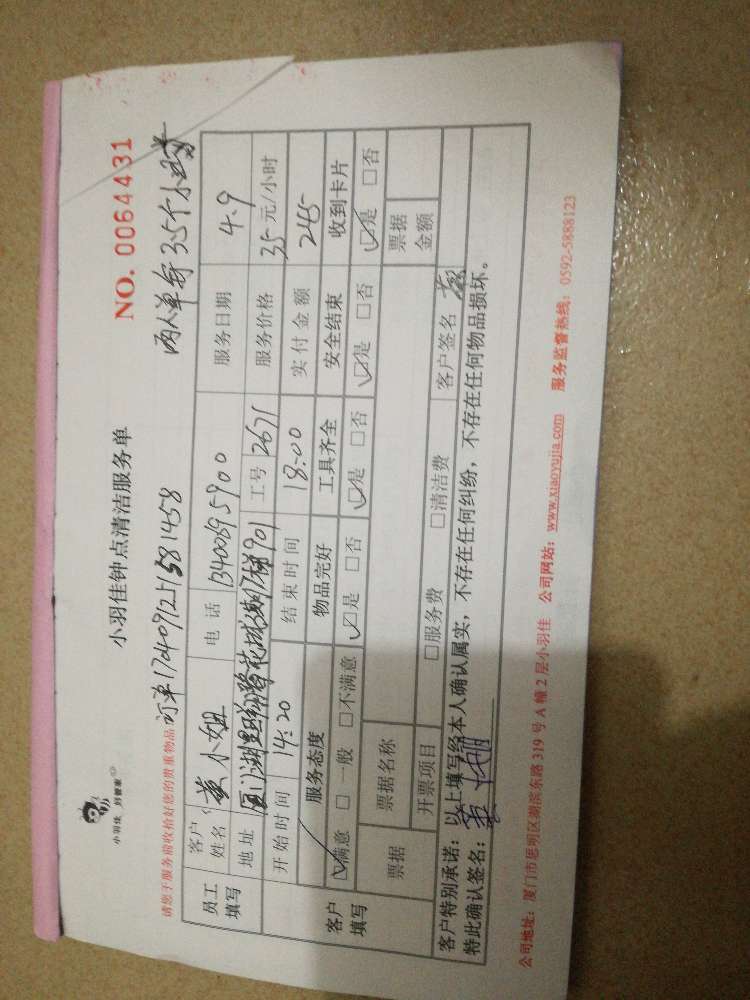 小羽佳 好管家
小羽佳钟点清洁服务单
NO. 0064431
请您于服务前收拾好您的贵重物品 订单1704091251581458 两人单每3.5个小时
员工填写 客户姓名 黄小姐 电话 13400895900 服务日期 4.9
地址 工号 2671 服务价格 35元/小时
开始时间 14:20 结束时间 18:00 实付金额 245
客户填写 服务态度 物品完好 工具齐全 安全结束 收到卡片
☑满意 □一般 □不满意 ☑是 □否 ☑是 □否 ☑是 □否 ☑是 □否
票据 票据名称 票据金额
开票项目 □服务费 □清洁费 客户签名
客户特别承诺：以上填写经本人确认属实，不存在任何纠纷，不存在任何物品损坏。
特此确认签名：
公司地址：厦门市思明区湖滨东路319号A幢2层小羽佳 公司网站：www.xiaoyujia.com 服务监督热线：0592-5888123